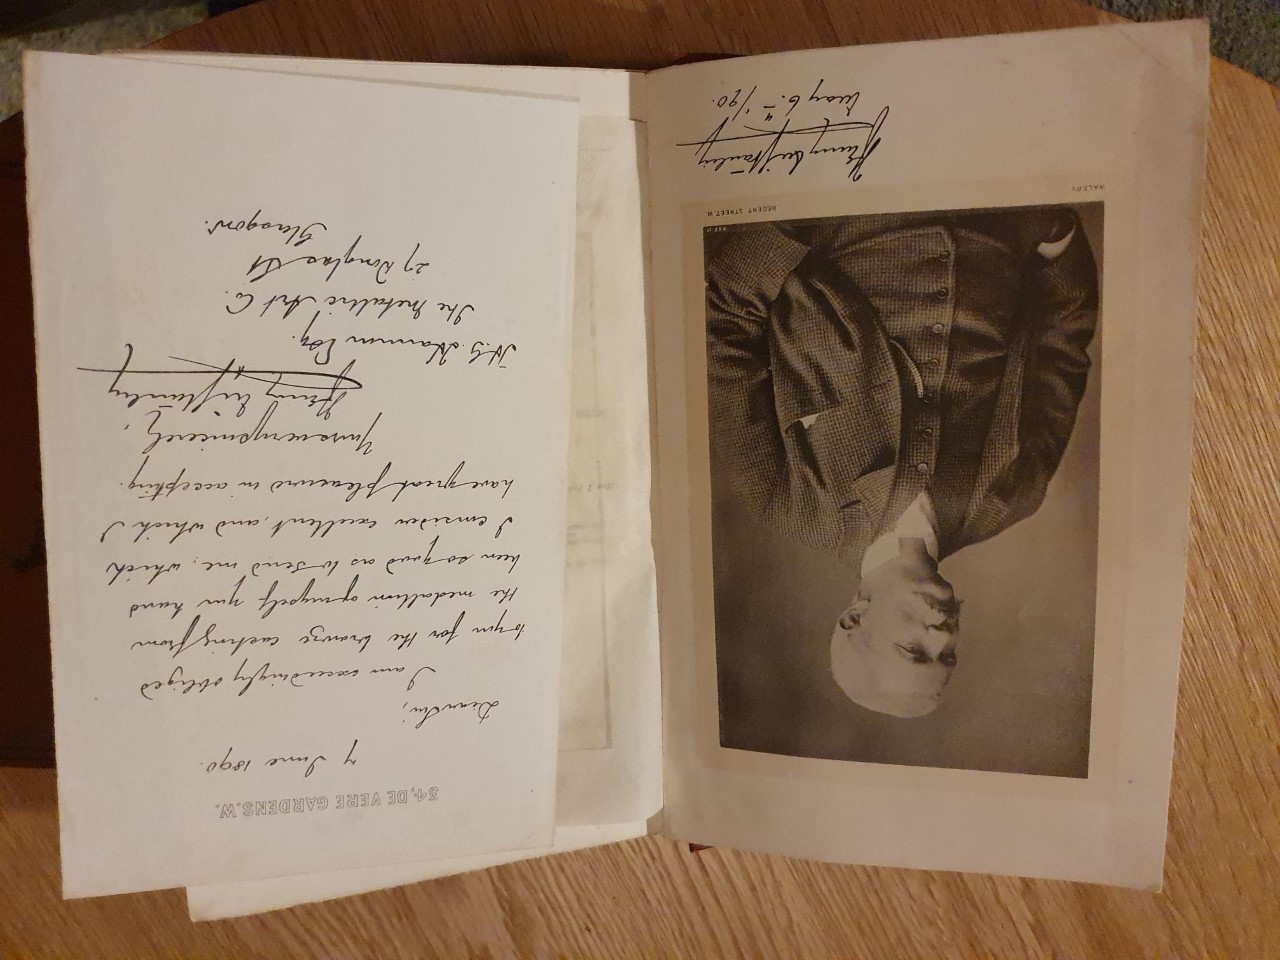 WALERY
REGENT STREET, W.
Henry M Stanley
May 6.th /90.
34, DE VERE GARDENS. W.
7 June 1890.
Dear Sir,
I am exceedingly obliged
to you for the bronze casting from
the medallion of myself you have
been so good as to send me, which
I consider excellent, and which I
have great pleasure in accepting.
Yours very sincerely,
Henry M Stanley
H. G. Hannon Esq.
The Metallic Art Co.
27 Douglas St
Glasgow.